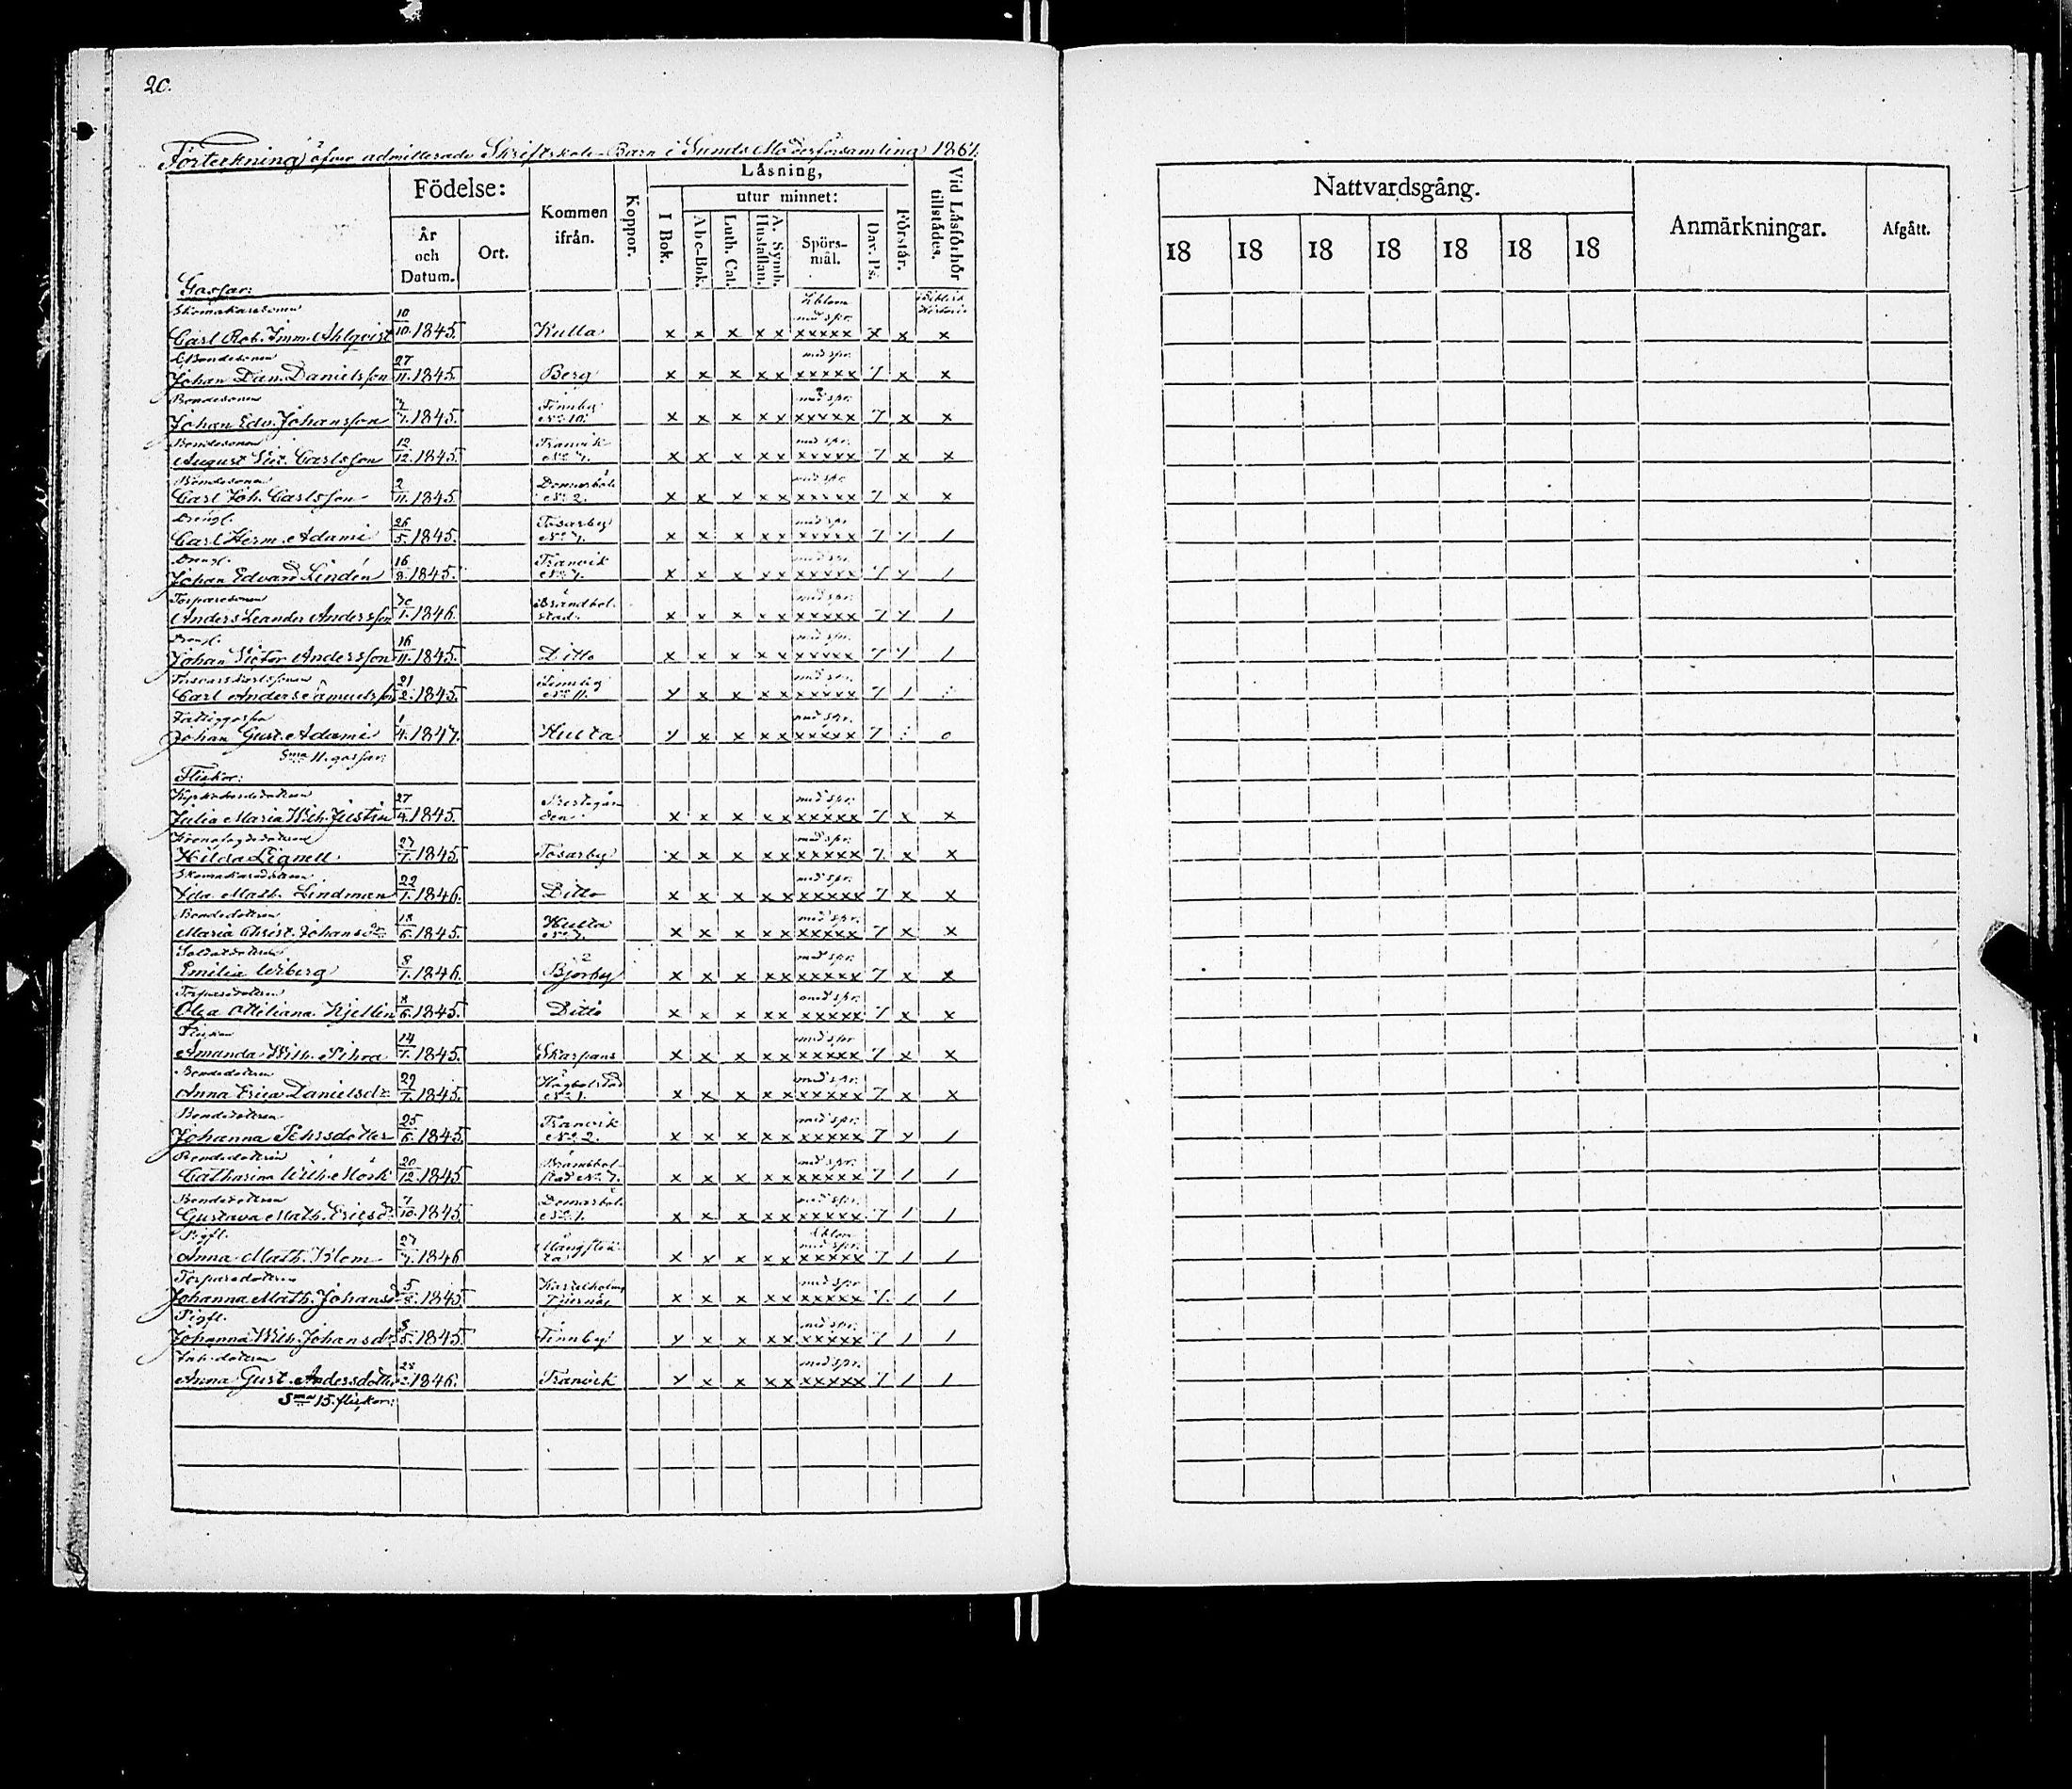 20.
Förteckning öfver admitterade Skriftskole-Barn i Sunds Moderförsamling 1861.
Födelse:
Kommen ifrån.
Koppor.
Läsning,
utur minnet:
Vid Läsförhör tillstädes.
År och Datum.
Ort.
I Bok.
Abc-Bok.
Luth. Cat.
A. Symb. Hustaflan.
Spörs-mål.
Dav. Ps.
Förstår.
Gossar:
Skomakaresonen med spr. Biblisk Historie
Carl Rob. Imm. Ahlqvist 10/10. 1845. Kulla x x x x x xxxxx x x x
Bondesonen med spr.
Johan Dan. Danielsson 27/11. 1845. Berg x x x x x xxxxx 7 x x
Bondesonen Finnby med spr.
Johan Edv. Johansson 1845. No 10. x x x x x xxxxx 7 x x
Bondesonen Tranvik med spr.
August Carlsson 12/12. 1845. x x x x x xxxxx 7 x x
Bondesonen Domarböle med spr.
Carl Joh. Carlsson 2/11. 1845. No 2. x x x x x xxxxx 7 x x
Drengl. Tosarby med spr.
Carl Herm. Adami 26/5. 1845. x x x x x xxxxx 7 y /
Drengl. Tranvik med spr.
Johan Edvard Lindén 1845. x x x x x xxxxx 7 y /
Torparesonen Brändbol- med spr.
Anders Leander Andersson 1846. stad. x x x x x xxxxx 7 y /
Drengl. med spr.
Johan Victor Andersson 16/11. 1845. Ditto x x x x x xxxxx 7 /
med spr.
Carl Anders Samuelsson 21/2. 1845. No 11. y x x x x xxxxx 7 /
Fattiggosse med spr.
Johan Gust. Adami 1/4. 1847. Hulta y x x x x xxxxx 7 o
Sma 11. gossar:
Flickor:
Prestegår- med spr.
Julia Maria Wilh. Justin 27/4. 1845. den. x x x x x xxxxx 7 x x
Kronofogdedottren med spr.
Hilda Lignell 1845. Tosarby x x x x x xxxxx 7 x x
Skomakaredottren med spr.
Ida Math. Lindman 22/1. 1846. Ditto x x x x x xxxxx 7 x x
Bondedottren Hulta med spr.
Maria Christ. Johansdr 18/6. 1845. x x x x x xxxxx 7 x x
Soldatdottren med spr.
Emilia Wiberg 8/1. 1846. Björby x x x x x xxxxx 7 x x
Torparedottren med spr.
Olga Ottiliana Kjellin 8/6. 1845. Ditto x x x x x xxxxx 7 x x
Flickan med spr.
Amanda Wilh. 1845. Skarpans x x x x x xxxxx 7 x x
Bondedottren Högbolstad med spr.
Anna Erica Danielsdr 29/7. 1845. No 1. x x x x x xxxxx 7 x x
Bondedottren Tranvik med spr.
Johanna Pehrsdotter 25/6. 1845. No 2. x x x x x xxxxx 7 y /
Bondedottren Brändbol- med spr.
Catharina Wilh. Mörk 20/12. 1845 stad x x x x x xxxxx 7 / /
Bondedottren Domarböle med spr.
Gustava Math. Ericsdr 7/10. 1845 No 1. x x x x x xxxxx 7 / /
Pigfl. Mångstek- med spr.
Anna Math. Blom 1846 ta x x x x x xxxxx 7 / /
Torparedottren Kastelholms med spr.
Johanna Math. Johansdr 1845 Tjuernäs x x x x x xxxxx 7 / /
Pigfl. med spr.
Johanna Wilh. Johansdr 1845 Finnby y x x x x xxxxx 7 / /
Inh.dottren med spr.
Anna Gust. Andersdotter 1846. Tranvik y x x x x xxxxx 7 / /
Sma 15. flickor:
Nattvardsgång.
Anmärkningar.
Afgått.
18 18 18 18 18 18 18